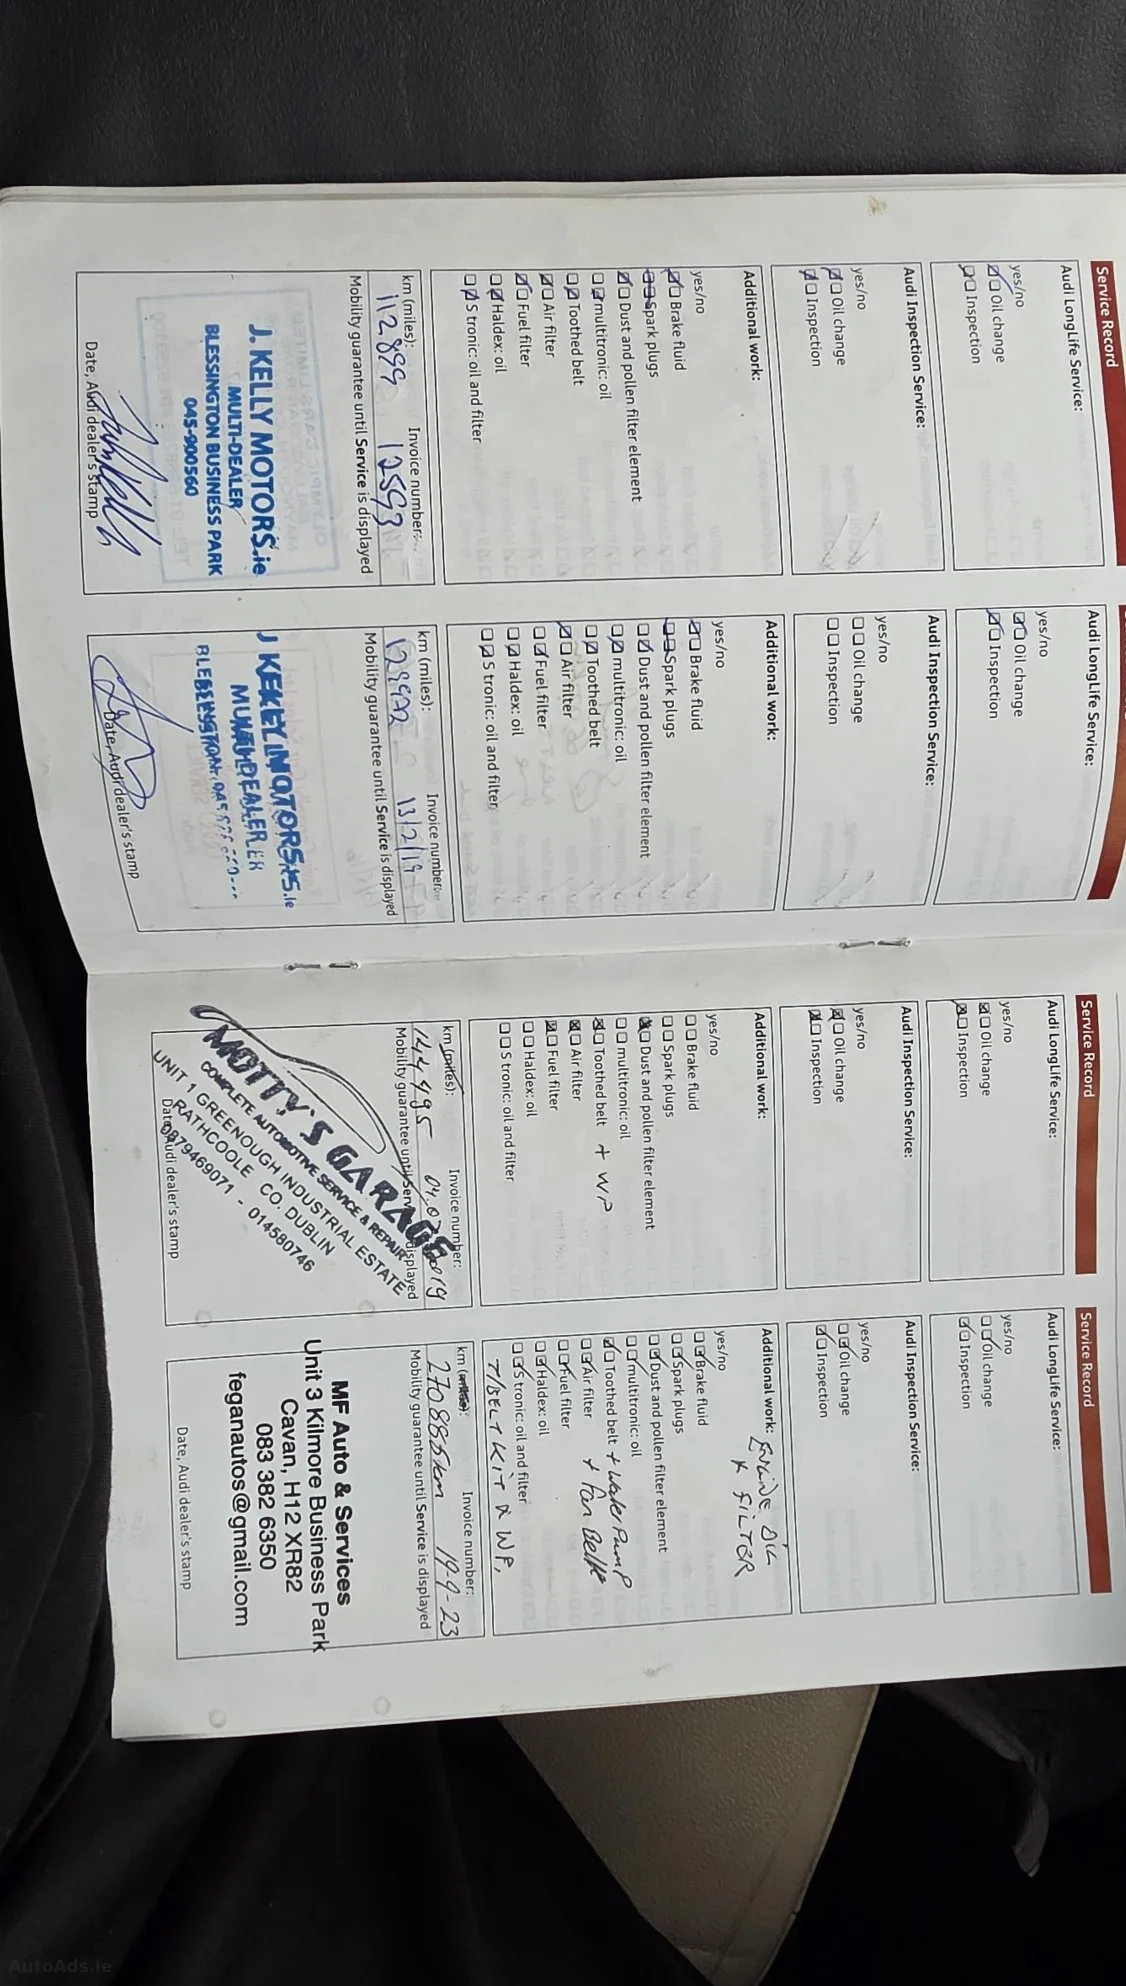 Service Record
Audi LongLife Service:
yes/no
Oil change
Inspection
Audi Inspection Service:
yes/no
Oil change
Inspection
Additional work:
yes/no
Brake fluid
Spark plugs
Dust and pollen filter element
multitronic: oil
Toothed belt
Air filter
Fuel filter
Haldex: oil
S tronic: oil and filter
km (miles): Invoice number:
112899 12593
Mobility guarantee until Service is displayed
J. KELLY MOTORS.ie
MULTI-DEALER
BLESSINGTON BUSINESS PARK
045-900560
Date, Audi dealer's stamp
Audi LongLife Service:
yes/no
Oil change
Inspection
Audi Inspection Service:
yes/no
Oil change
Inspection
Additional work:
yes/no
Brake fluid
Spark plugs
Dust and pollen filter element
multitronic: oil
Toothed belt
Air filter
Fuel filter
Haldex: oil
S tronic: oil and filter
km (miles): Invoice number:
13/2/19
Mobility guarantee until Service is displayed
Date, Audi dealer's stamp
Service Record
Audi LongLife Service:
yes/no
Oil change
Inspection
Audi Inspection Service:
yes/no
Oil change
Inspection
Additional work:
yes/no
Brake fluid
Spark plugs
Dust and pollen filter element
multitronic: oil
Toothed belt + WP
Air filter
Fuel filter
Haldex: oil
S tronic: oil and filter
km (miles): Invoice number:
144495
Mobility guarantee until Service is displayed
MOTTY'S GARAGE
COMPLETE AUTOMOTIVE SERVICE & REPAIR
UNIT 1 GREENOUGH INDUSTRIAL ESTATE
RATHCOOLE CO. DUBLIN
0879469071 - 014580746
Date, Audi dealer's stamp
Service Record
Audi LongLife Service:
yes/no
Oil change
Inspection
Audi Inspection Service:
yes/no
Oil change
Inspection
Additional work: ENGINE OIL
& FILTOR
yes/no
Brake fluid
Spark plugs
Dust and pollen filter element
multitronic: oil
Toothed belt + Water Pump
Air filter + Fan Belt
Fuel filter
Haldex: oil
S tronic: oil and filter
T/BELT KIT & WP,
km (miles): Invoice number:
270886km 19-9-23
Mobility guarantee until Service is displayed
MF Auto & Services
Unit 3 Kilmore Business Park
Cavan, H12 XR82
083 382 6350
feganautos@gmail.com
Date, Audi dealer's stamp
AutoAds.ie